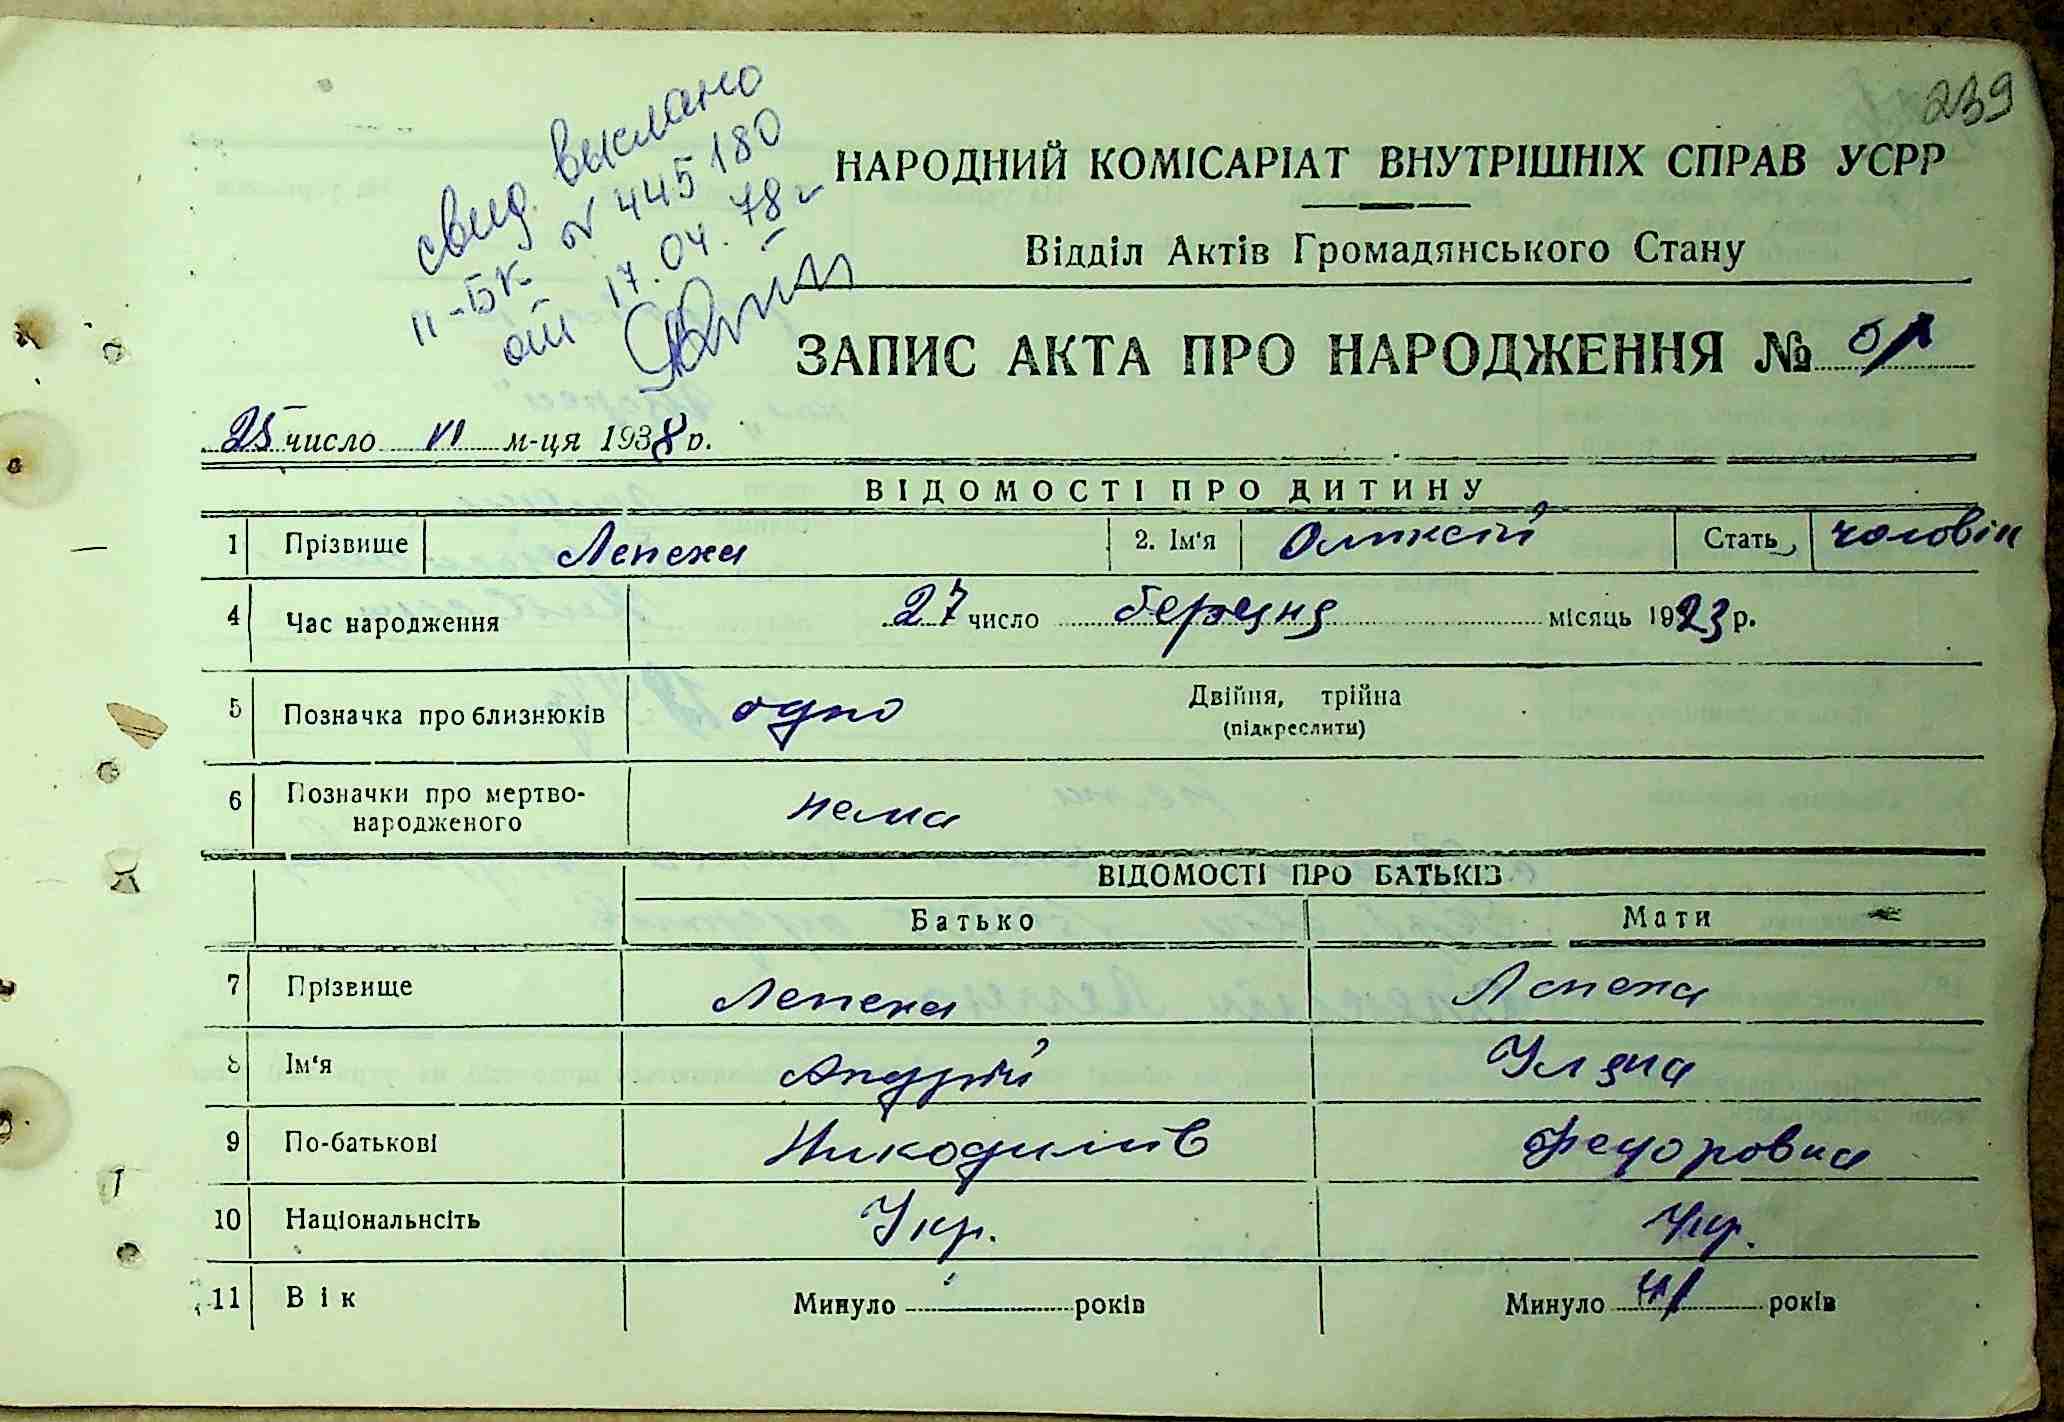 239
свид. выслано
II-БК № 445180
от 17.04.78г
НАРОДНИЙ КОМІСАРІАТ ВНУТРІШНІХ СПРАВ УСРР
Відділ Актів Громадянського Стану
ЗАПИС АКТА ПРО НАРОДЖЕННЯ №
25 число VI м-ця 1938 р.
ВІДОМОСТІ ПРО ДИТИНУ
1 Прізвище Лепеха 2. Ім'я Олексій Стать чоловіч
4 Час народження 27 число березня місяць 1923 р.
5 Позначка про близнюків одно Двійня, трійна
(підкреслити)
6 Позначки про мертво-
народженого нема
ВІДОМОСТІ ПРО БАТЬКІВ
Батько Мати
7 Прізвище Лепеха Лепеха
8 Ім'я Андрій Уляна
9 По-батькові Никодимів Федоровна
10 Національнсіть Укр. Укр.
11 Вік Минуло років Минуло 41 років